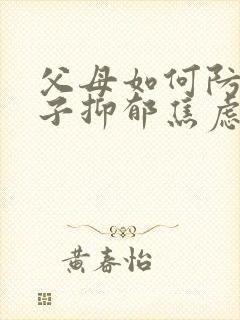 父母如何防
子抑郁焦虑
黄春怡